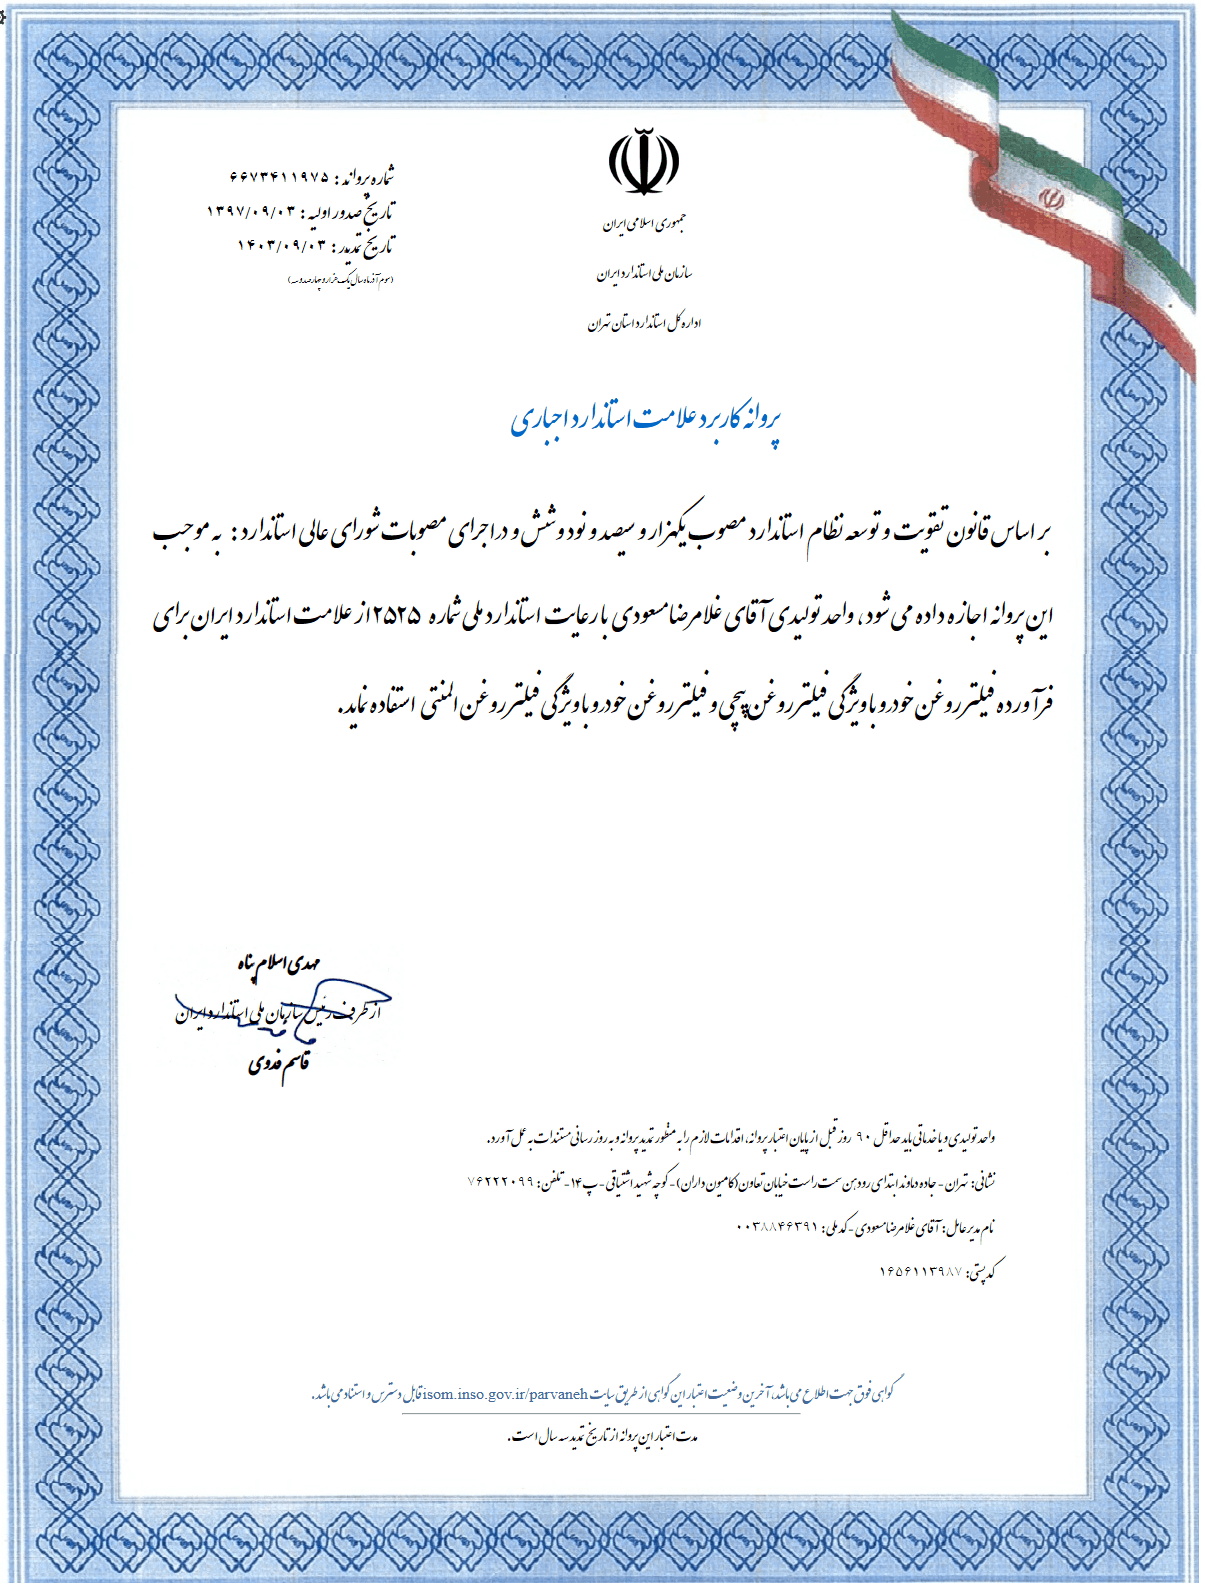 جمهوری اسلامی ایران
سازمان ملی استاندارد ایران
اداره کل استاندارد استان تهران
شماره پروانه : ۶۶۷۳۴۱۱۹۷۵
تاریخ صدور اولیه : ۱۳۹۷/۰۹/۰۳
تاریخ تمدید : ۱۴۰۳/۰۹/۰۳
(سوم آذر ماه سال یک هزار و چهارصد و سه)
پروانه کاربرد علامت استاندارد اجباری
بر اساس قانون تقویت و توسعه نظام استاندارد مصوب یکهزار و سیصد و نود و شش و در اجرای مصوبات شورای عالی استاندارد : به موجب
این پروانه اجازه داده می شود، واحد تولیدی آقای غلامرضا مسعودی با رعایت استاندارد ملی شماره ۲۵۲۵ از علامت استاندارد ایران برای
فرآورده فیلتر روغن خودرو با ویژگی فیلتر روغن پیچی و فیلتر روغن خودرو با ویژگی فیلتر روغن المنتی استفاده نماید.
مهدی اسلام پناه
از طرف رئیس سازمان ملی استاندارد ایران
قاسم فدوی
واحد تولیدی و یا خدماتی باید حداقل ۹۰ روز قبل از پایان اعتبار پروانه، اقدامات لازم را به منظور تمدید پروانه و به روز رسانی مستندات به عمل آورد.
نشانی: تهران - جاده دماوند ابتدای رودهن سمت راست خیابان تعاون (کامیون داران) - کوچه شهید اشتیاقی - پ ۱۴ - تلفن: ۷۶۲۲۲۰۹۹
نام مدیرعامل: آقای غلامرضا مسعودی - کد ملی: ۰۰۳۸۸۴۶۳۹۱
کد پستی: ۱۶۵۶۱۱۳۹۸۷
گواهی فوق جهت اطلاع می باشد، آخرین وضعیت اعتبار این گواهی از طریق سایت isom.inso.gov.ir/parvaneh قابل دسترس و استناد می باشد.
مدت اعتبار این پروانه از تاریخ تمدید سه سال است.